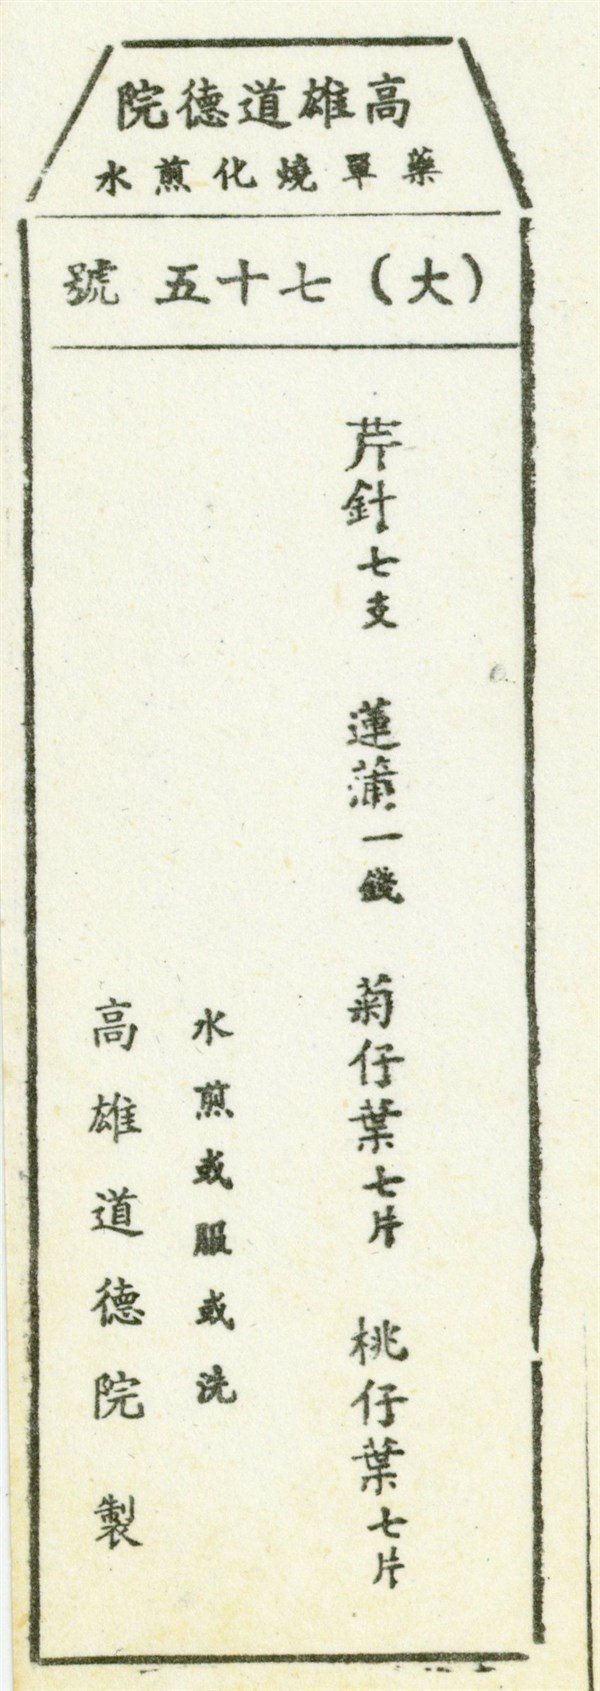 高雄道德院
藥單燒化煎水
（大）七十五號
芹針七支　蓮蒲一錢　菊仔葉七片　桃仔葉七片
水煎或服或洗
高雄道德院製